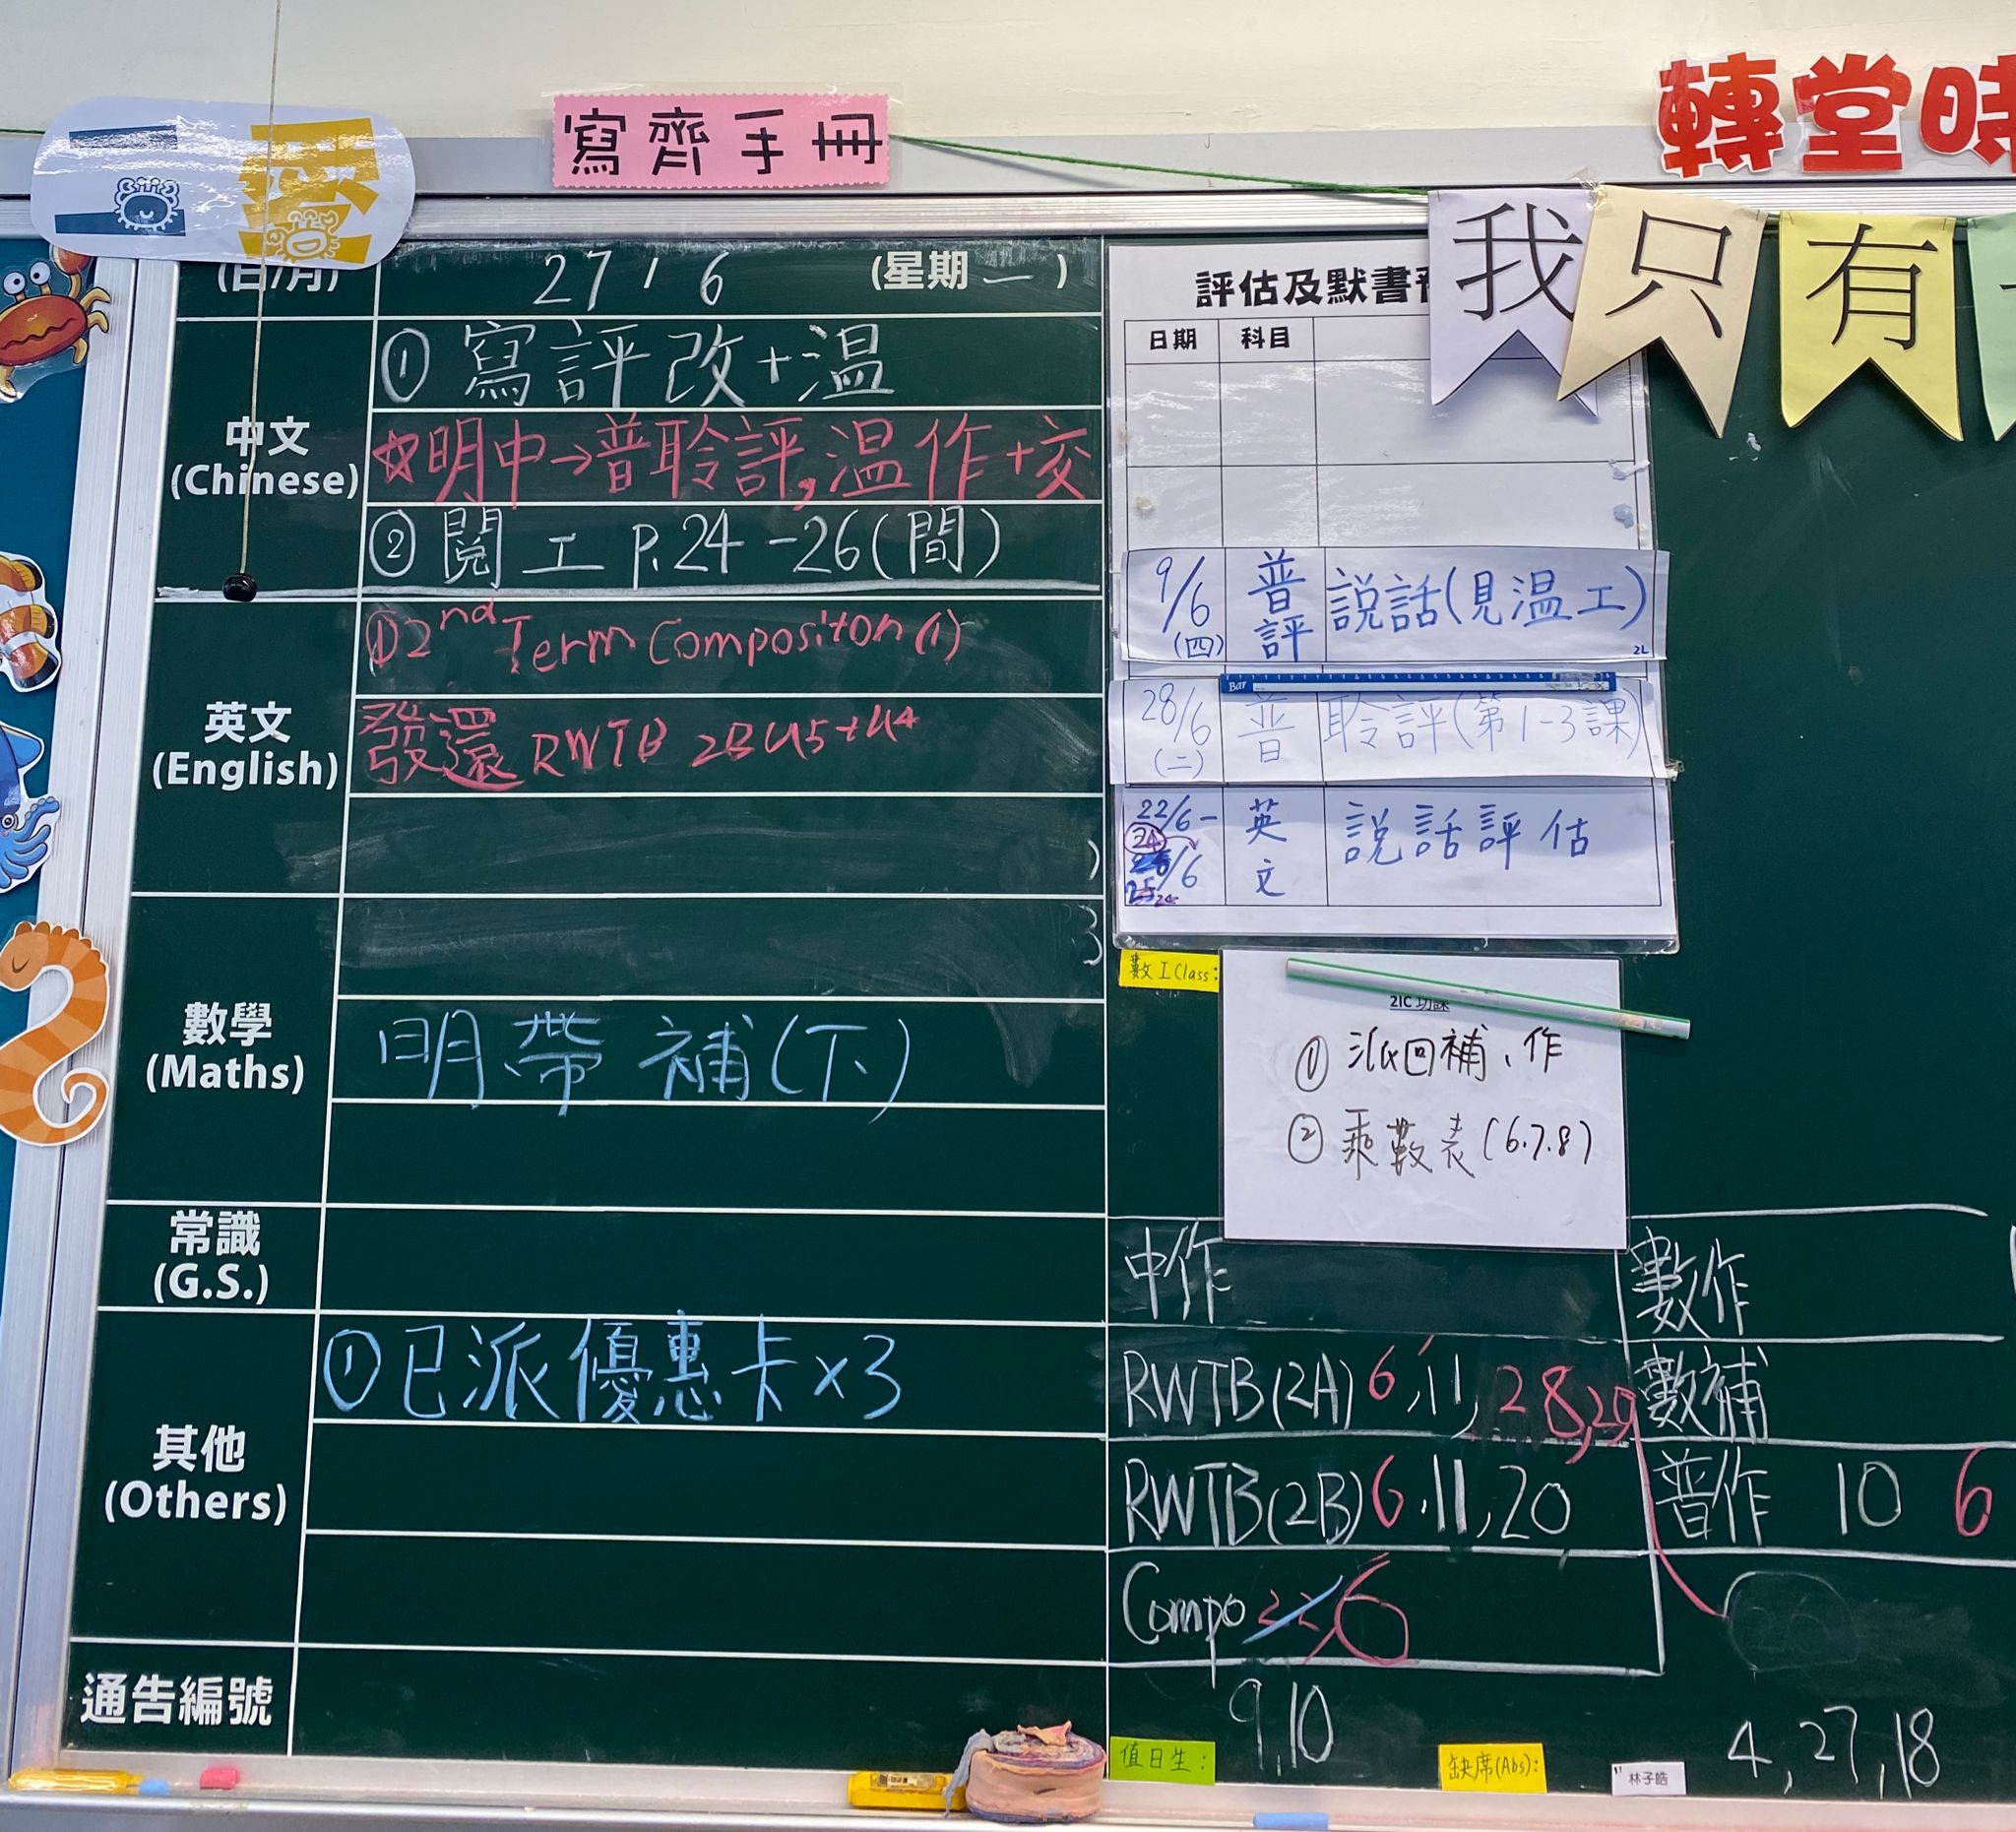 寫齊手冊
轉堂時
我只有
(日/月) 27 / 6 (星期一)
中文
(Chinese)
① 寫評改+温
☆明中→普聆評,温作+交
② 閱工 P.24-26(間)
英文
(English)
① 2nd Term Compositon (1)
發還 RWTB 2B U5+U4
數學
(Maths)
明帶補(下)
常識
(G.S.)
其他
(Others)
① 已派優惠卡x3
通告編號
評估及默書
日期 科目
9/6 (四) 普評 説話(見温工)
2L
Bar
28/6 (二) 普 聆評(第1-3課)
22/6- 24 /6 英文 説話評估
數工Class:
2IC 功課
① 派回補、作
② 乘數表(6.7.8)
中作
數作
RWTB(2A) 6,11,28,29
數補
RWTB(2B) 6.11,20
普作 10 6
Compo 22,6
9,10
4,27,18
值日生:
缺席(Abs):
林子皓